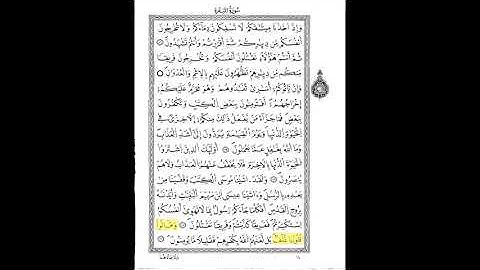 سُورَةُ الْبَقَرَةِ
وَإِذْ أَخَذْنَا مِيثَٰقَكُمْ لَا تَسْفِكُونَ دِمَآءَكُمْ وَلَا تُخْرِجُونَ
أَنفُسَكُم مِّن دِيَٰرِكُمْ ثُمَّ أَقْرَرْتُمْ وَأَنتُمْ تَشْهَدُونَ
ثُمَّ أَنتُمْ هَٰٓؤُلَآءِ تَقْتُلُونَ أَنفُسَكُمْ وَتُخْرِجُونَ فَرِيقًا
مِّنكُم مِّن دِيَٰرِهِمْ تَظَٰهَرُونَ عَلَيْهِم بِالْإِثْمِ وَالْعُدْوَٰنِ
وَإِن يَأْتُوكُمْ أُسَٰرَىٰ تُفَٰدُوهُمْ وَهُوَ مُحَرَّمٌ عَلَيْكُمْ
إِخْرَاجُهُمْ أَفَتُؤْمِنُونَ بِبَعْضِ الْكِتَٰبِ وَتَكْفُرُونَ
بِبَعْضٍ فَمَا جَزَآءُ مَن يَفْعَلُ ذَٰلِكَ مِنكُمْ إِلَّا خِزْيٌ فِي
الْحَيَوٰةِ الدُّنْيَا وَيَوْمَ الْقِيَٰمَةِ يُرَدُّونَ إِلَىٰ أَشَدِّ الْعَذَابِ
وَمَا اللَّهُ بِغَٰفِلٍ عَمَّا تَعْمَلُونَ أُولَٰٓئِكَ الَّذِينَ اشْتَرَوُا
الْحَيَوٰةَ الدُّنْيَا بِالْءَاخِرَةِ فَلَا يُخَفَّفُ عَنْهُمُ الْعَذَابُ وَلَا هُمْ
يُنصَرُونَ وَلَقَدْ ءَاتَيْنَا مُوسَى الْكِتَٰبَ وَقَفَّيْنَا مِن
بَعْدِهِ بِالرُّسُلِ وَءَاتَيْنَا عِيسَى ابْنَ مَرْيَمَ الْبَيِّنَٰتِ وَأَيَّدْنَٰهُ
بِرُوحِ الْقُدُسِ أَفَكُلَّمَا جَآءَكُمْ رَسُولٌ بِمَا لَا تَهْوَىٰ أَنفُسُكُمُ
اسْتَكْبَرْتُمْ فَفَرِيقًا كَذَّبْتُمْ وَفَرِيقًا تَقْتُلُونَ وَقَالُوا
قُلُوبُنَا غُلْفٌ بَل لَّعَنَهُمُ اللَّهُ بِكُفْرِهِمْ فَقَلِيلًا مَّا يُؤْمِنُونَ